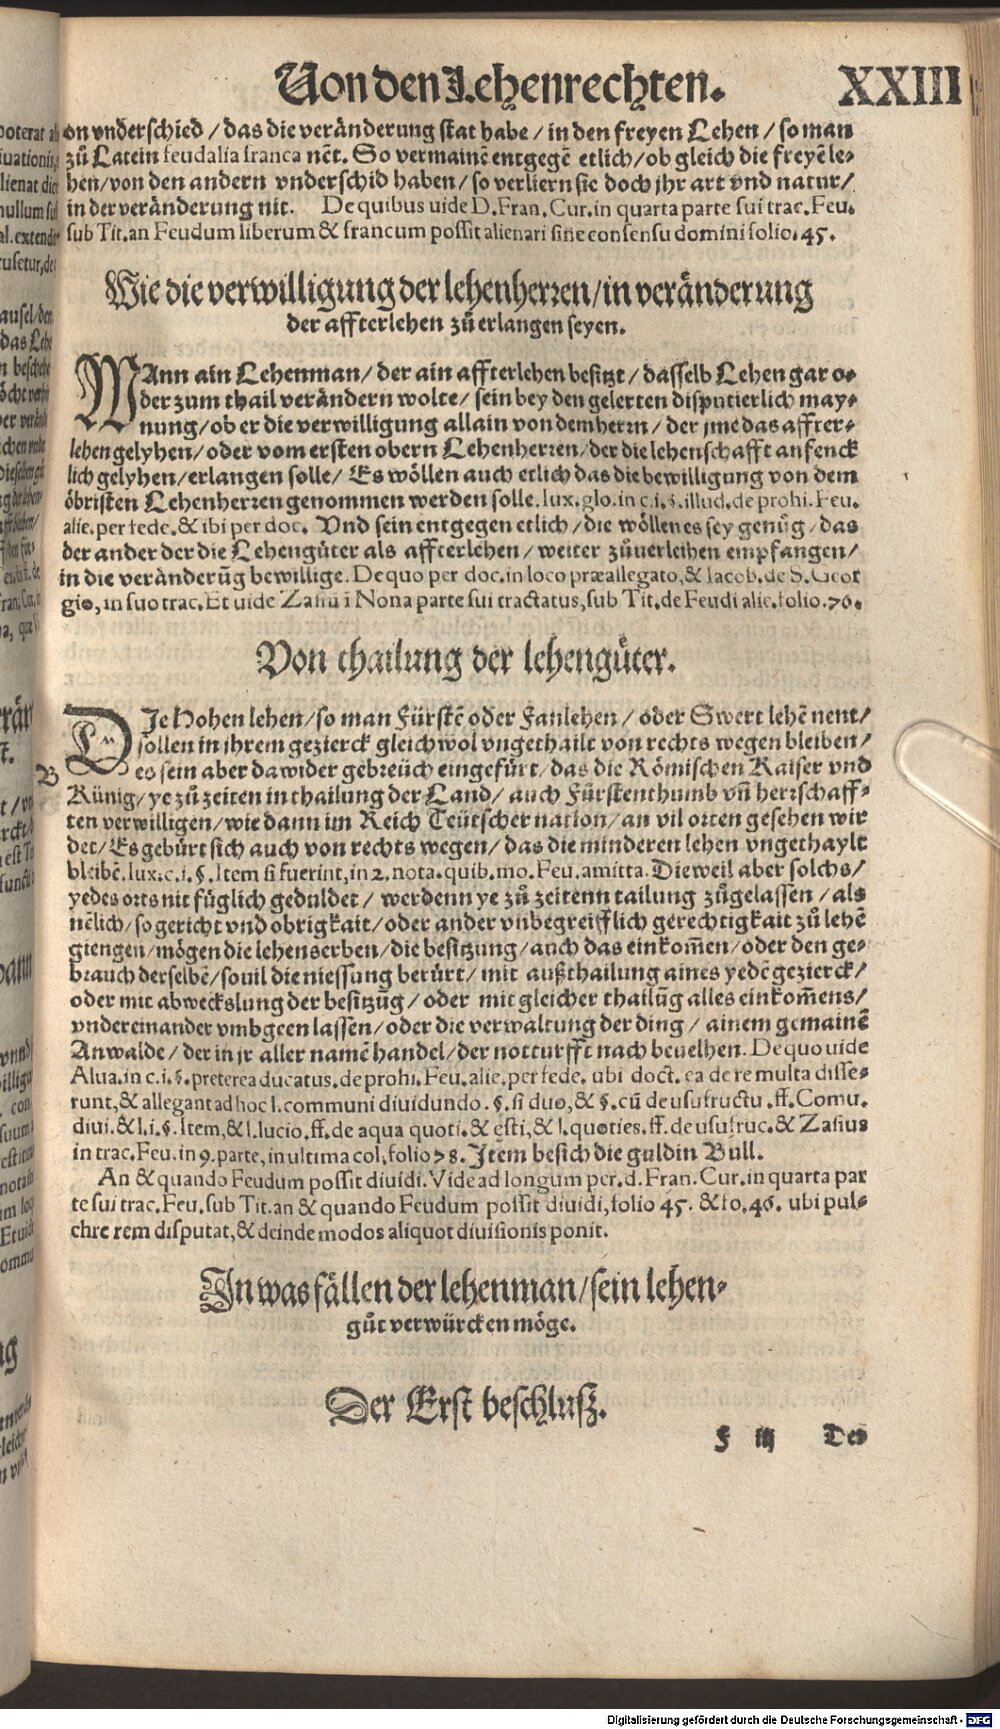 Von den Lehenrechten. XXIII
on vnderschied / das die veränderung stat habe / in den freyen Lehen / so man
zů Latein feudalia franca nẽt. So vermainẽ entgegẽ etlich / ob gleich die freyẽ le-
hen / von den andern vnderschid haben / so verliern sie doch jhr art vnd natur /
in der veränderung nit. De quibus uide D. Fran. Cur. in quarta parte sui trac. Feu.
sub Tit. an Feudum liberum & francum possit alienari sine consensu domini folio. 45.
Wie die verwilligung der lehenherren / in veränderung
der affterlehen zů erlangen seyen.
WAnn ain Lehenman / der ain affterlehen besitzt / dasselb Lehen gar o-
der zum thail verändern wolte / sein bey den gelerten disputierlich may-
nung / ob er die verwilligung allain von dem herrn / der jme das affter-
lehen gelyhen / oder vom ersten obern Lehenherren / der die lehenschafft anfenck
lich gelyhen / erlangen solle / Es wöllen auch etlich das die bewilligung von dem
öbristen Lehenherren genommen werden solle. Iux. glo. in c. i. §. illud. de prohi. Feu.
alie. per fede. & ibi per doc. Vnd sein entgegen etlich / die wöllen es sey genůg / das
der ander der die Lehengüter als affterlehen / weiter zůuerleihen empfangen /
in die veränderũg bewillige. De quo per doc. in loco præallegato, & Iacob. de S. Geor
gio, in suo trac. Et uide Zasiũ ĩ Nona parte sui tractatus, sub Tit. de Feudi alie. folio. 76.
Von thailung der lehengüter.
DIe Hohen lehen / so man Fürstẽ oder Fanlehen / oder Swert lehẽ nent /
sollen in jhrem gezierck gleichwol vngethailt von rechts wegen bleiben /
B
es sein aber dawider gebreüch eingefürt / das die Römischen Kaiser vnd
Künig / ye zů zeiten in thailung der Land / auch Fürstenthumb vñ herrschaff-
ten verwilligen / wie dann im Reich Teütscher nation / an vil orten gesehen wir
det / Es gebürt sich auch von rechts wegen / das die minderen lehen vngethaylt
bleibẽ. Iux. c. i. §. Item si fuerint, in 2. nota. quib. mo. Feu. amitta. Dieweil aber solchs /
yedes orts nit füglich geduldet / werden ye zů zeitenn tailung zůgelassen / als
nẽlich / so gericht vnd obrigkait / oder ander vnbegreifflich gerechtigkait zů lehẽ
giengen / mögen die lehenserben / die besitzung / auch das einkom̃en / oder den ge-
brauch derselbẽ / souil die niessung berürt / mit außthailung aines yedẽ gezierck /
oder mit abwechslung der besitzũg / oder mit gleicher thailũg alles einkom̃ens /
vndereinander vmbgeen lassen / oder die verwaltung der ding / ainem gemainẽ
Anwalde / der in jr aller namẽ handel / der notturfft nach beuelhen. De quo uide
Alua. in c. i. §. preterea ducatus. de prohi. Feu. alie. per fede. ubi doct. ea de re multa disse-
runt, & allegant ad hoc l. communi diuidundo. §. si duo, & §. cũ de usufructu. ff. Comu.
diui. & l. i. §. Item, & l. lucio. ff. de aqua quoti. & esti, & l. quoties. ff. de usufruc. & Zasius
in trac. Feu. in 9. parte, in ultima col. folio 78. Item besich die guldin Bull.
An & quando Feudum possit diuidi. Vide ad longum per. d. Fran. Cur. in quarta par
te sui trac. Feu. sub Tit. an & quando Feudum possit diuidi, folio 45. & fo. 46. ubi pul-
chre rem disputat, & deinde modos aliquot diuisionis ponit.
In was fällen der lehenman / sein lehen-
gůt verwürcken möge.
Der Erst beschluß.
F iij Der
Digitalisierung gefördert durch die Deutsche Forschungsgemeinschaft - DFG